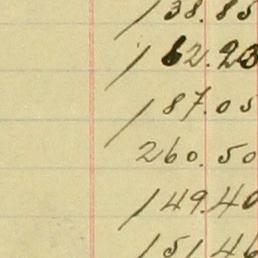 138.85
162.23
187.05
260.50
149.40
151.46